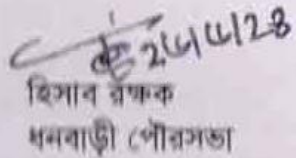 হিসাব রক্ষক
ধনবাড়ী পৌরসভা